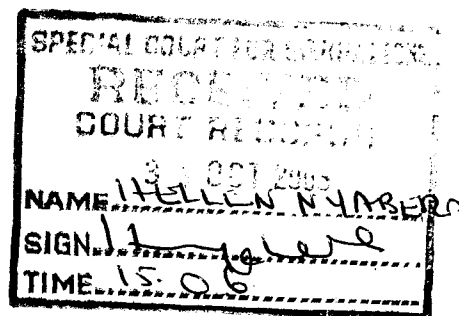 SPECIAL COURT FOR SIERRA LEONE
RECEIVED
COURT RECORDS
OCT 2003
NAME HELLEN NYABERA
SIGN
TIME 15.06